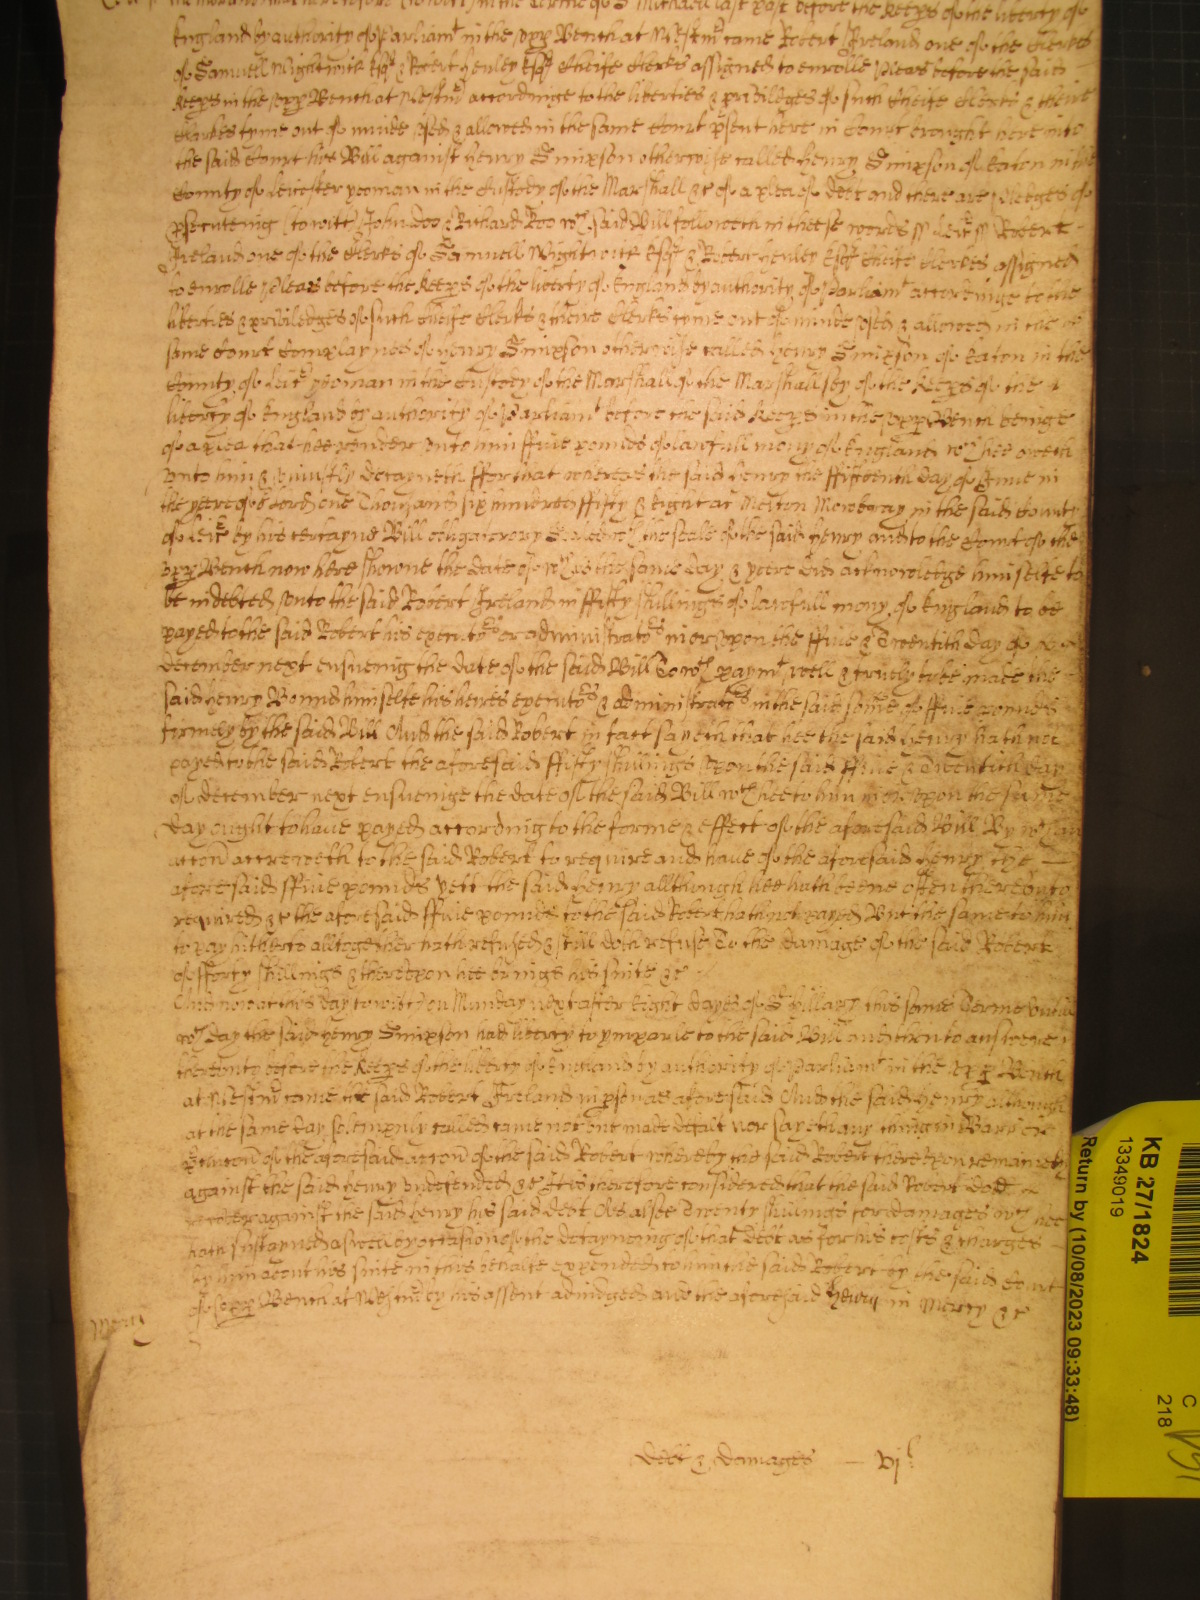 Memorand that heretofore (to witt) in the Terme of St Michaell last past before the Keeps of the liberty of
England by authority of Parliamt in the upp Bench at Westmr came Robert Ireland one of the Clerkes
of Samuell Wightwick Esqr & Robert Henley Esqr Cheife Clerkes assigned to enrolle Pleas before the said
Keeps in the upp Bench at Westmr accordinge to the liberties & priviledges of such Cheife Clerks & theire
Clarkes tyme out of minde used & allowed in the same Court psent here in Court brought here into
the said Court his Bill against Henry Simxson otherwise called Henry Simxson of Eaton in the
County of Leicester yeoman in the Custody of the Marshall &c of a plea of Debt and there are Pledges of
psecuteing (to witt) John Doo & Richard Roo wch said Bill followeth in theese words ss Leic ss Robert
Ireland one of the Clerks of Samuell Wightwick Esqr & Robert Henley Esqr Cheife Clerkes assigned
to enrolle Pleas before the Keeps of the liberty of England by authority of Parliamt accordinge to the
liberties & priviledges of such Cheife Clerks & theire Clerks tyme out of minde used & allowed in the
same Court Complaynes of Henry Simxson otherwise called Henry Simxson of Eaton in the
County of Leic yeoman in the Custody of the Marshall of the Marshallsey of the Keeps of the
liberty of England by authority of Parliamt before the said Keeps in the upp Bench beinge
of a plea that hee render unto him ffive pounds of lawfull mony of England wch hee oweth
unto him & uniustly detayneth ffor that whereas the said Henry the ffifteenth day of June in
the yeere of or Lord one Thousand six hundred ffifty & Eight at Melton Mowbray in the said County
of Leic by his certayne Bill obligatory Sealed wth the seale of the said Henry and to the Court of the
upp Bench now here showne the date of wch is the same day & yeere did acknowledge himselfe to
be indebted unto the said Robert Ireland in ffifty shillings of lawfull mony of England to be
payed to the said Robert his executors or administrators in or upon the ffive & Twentith day of
December next ensueing the date of the said Bill To wch paymt well & truely to be made the
said Henry Bound himselfe his heires executors & administrators in the said some of ffive pounds
firmely by the said Bill And the said Robert in fact sayeth that hee the said Henry hath not
payed to the said Robert the aforesaid ffifty shillings upon the said ffive & Twentith day
of December next ensueinge the date of the said Bill wch hee to him in or upon the same
day ought to have payed according to the forme & effect of the aforesaid Bill By wch an
accon accreweth to the said Robert to require and have of the aforesaid Henry the
aforesaid ffive pounds yett the said Henry allthough hee hath beene often thereunto
required &c the aforesaid ffive pounds to the said Robert hath not payed But the same to him
to pay hitherto alltogether hath refused & still doth refuse To the damage of the said Robert
of fforty shillings & thereupon hee brings his suite &c
And now at this day (to witt) on Munday next after Eight dayes of St Hillary this same Terme untill
wch day the said Henry Simxson had liberty to ymparle to the said Bill and then to answere
thereunto before the Keeps of the liberty of England by authority of Parliamt in the upp Bench
at Westmr came the said Robert Ireland in pson as aforesaid And the said Henry although
at the same day solempnly called came not but made default nor sayeth any thing in Barr or
pclusion of the aforesaid accon of the said Robert whereby the said Robert thereupon remayneth
against the said Henry undefended &c It is therefore considered that the said Robert doe
recover against the said Henry his said debt And alsoe Twenty shillings for damages wch hee
hath susteyned aswell by occasion of the detayneing of that Debt as for his costs & charges
by him about his suite in this behalfe expended to him the said Robert by the said Court
of upp Bench at Westmr by his assent adiudged and the aforesaid Henry in Mercy &c
Mercy
Debt & Damages — vjl
KB 27/1824
13349019
Return by (10/08/2023 09:33:48)
C
218